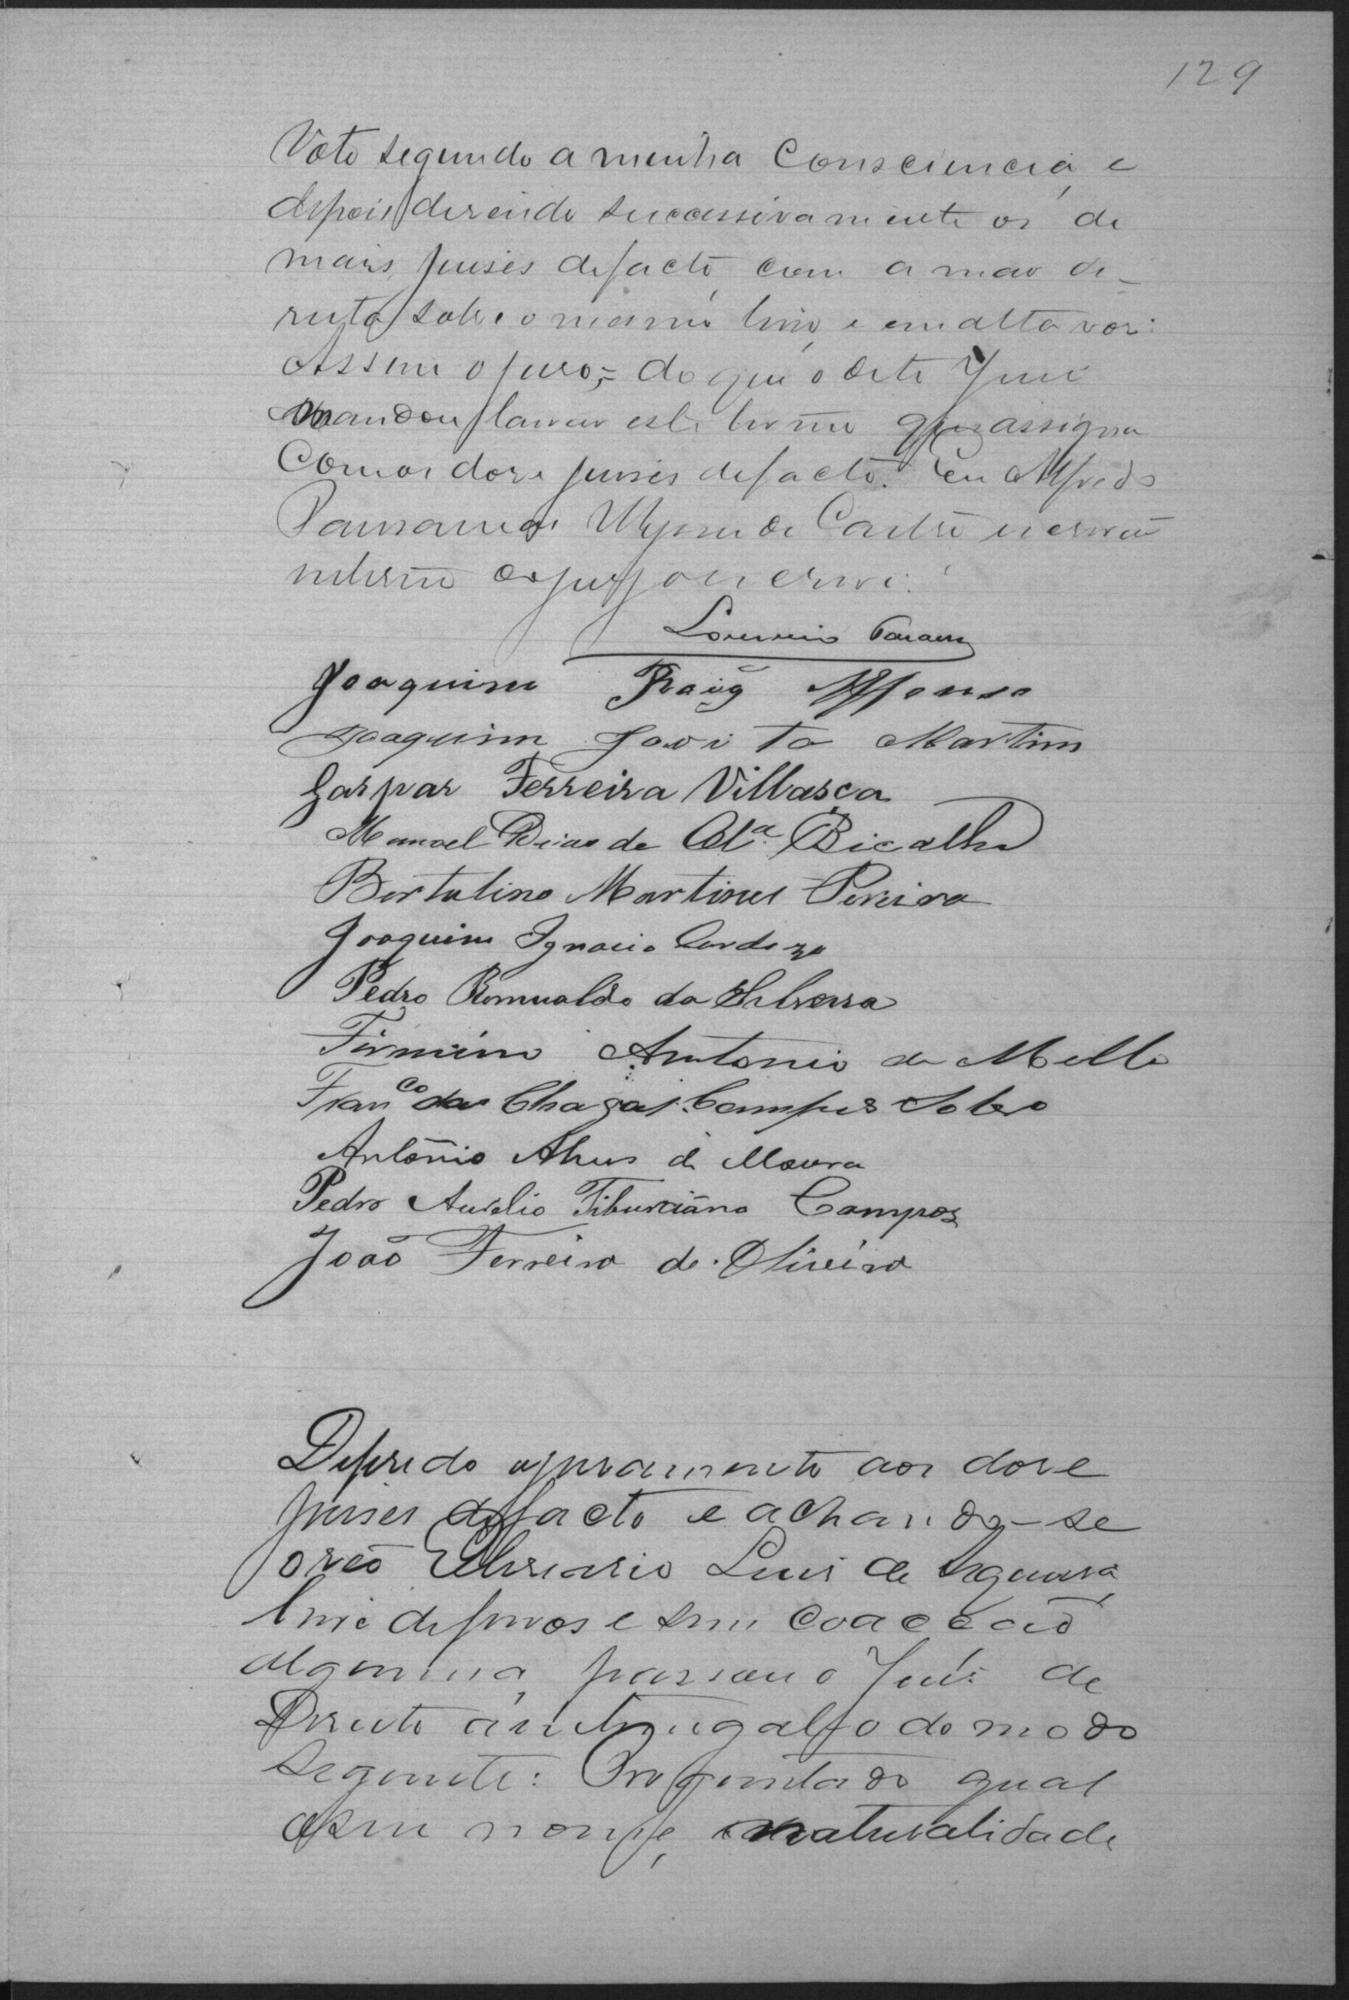 129
Voto segundo a minha Consciencia, e
depois diseindo successivamente os de
mais juises de facto, com a mao di-
reita sobre o mesmo livro, e em alta vos:
Assim o juro; = do que o dito Juis
Mandou lavrar este termo que assigna
Com os dose juises de facto. Eu Alfredo
de Castro escrivão
interino o escrevi.
Joaquim Affonso
Joaquim Jovita Martins
Gaspar Ferreira Villasca
Manoel Dias de Olª Bicalho
Bertulino Martins Pereira
Joaquim Ignacio Cardozo
Pedro Romualdo da Silveira
Firmino Antonio de Mello
Franco das Chagas Campos Sobro
Antônio Alves de Moura
Pedro Aurelio Tiburciano Campos
João Ferreira de Oliveira
Deferido o juramento aos dose
juises de facto e achando-se
o reo Luis de Siqueira,
livre de ferros e sem coacção
alguma, passou o Juis de
Direito a interrogal-o do modo
seguinte: Perguntado qual
o seu nome, naturalidade